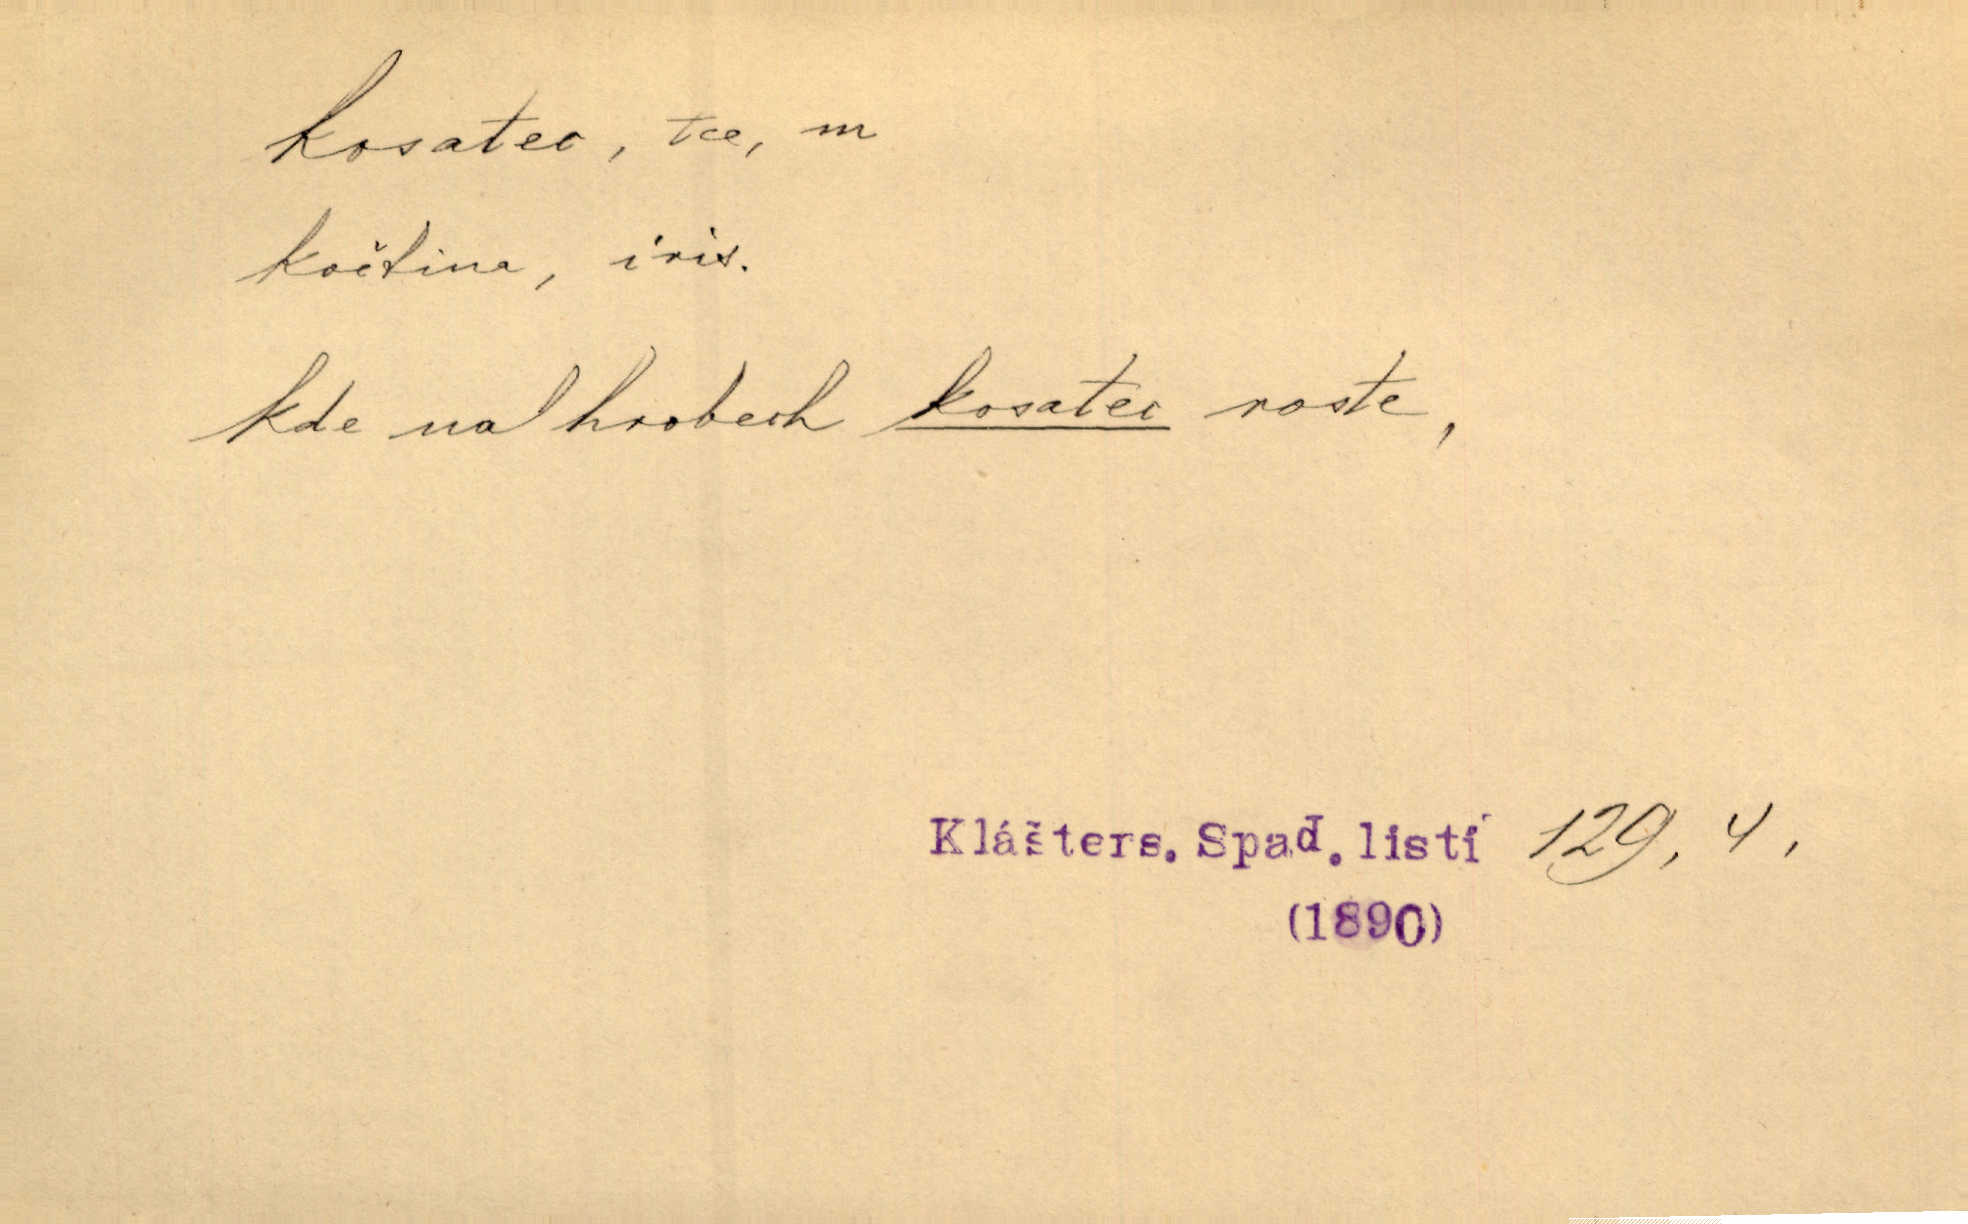 kosatec, tce, m
květina, iris.
kde na hrobech kosatec roste,
Klášters. Spad. listí 129, 4,
(1890)